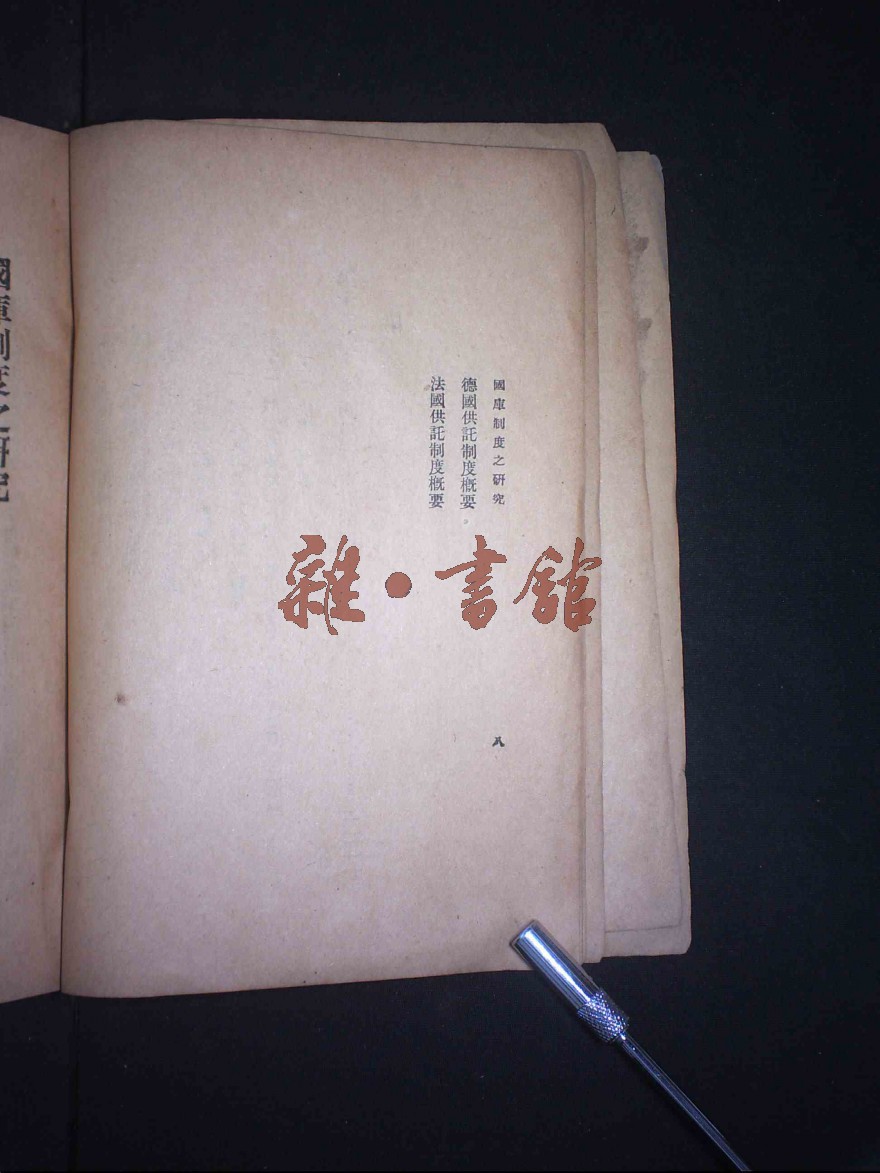 國庫制度之研究
德國供託制度概要
法國供託制度概要
八
國庫制度之研究
雜·書館